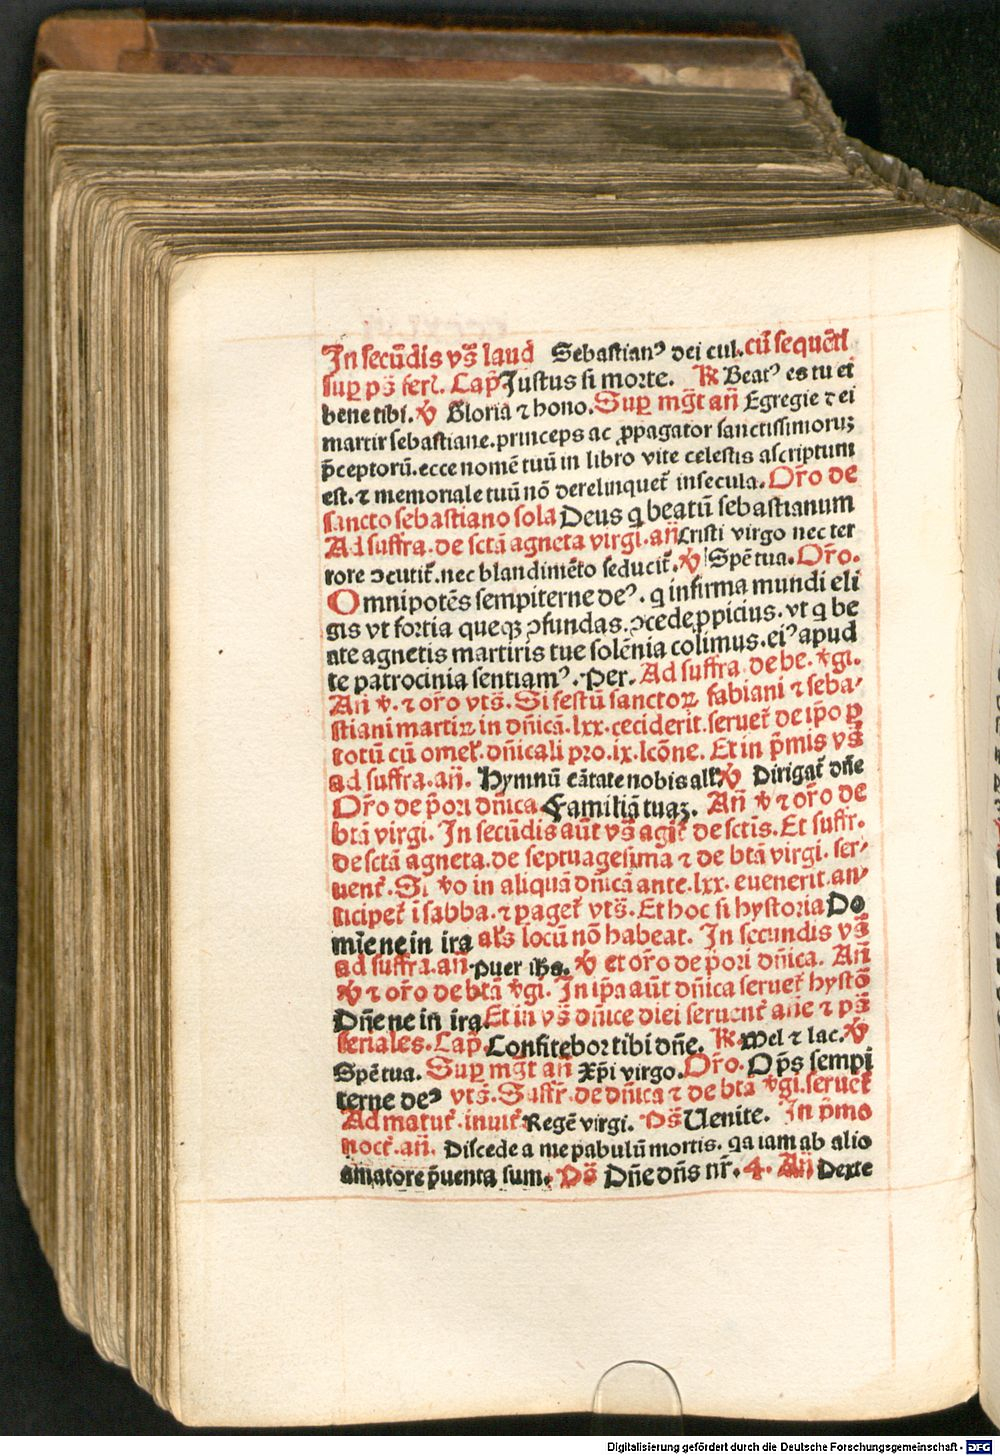 In secūdis vs̄ laud Sebastianꝰ dei cul. cū sequētí
suꝑ ps̄ ferĺ. Cap̄ Justus si morte. ℟ Beatꝰ es tu et
bene tibi. ℣ Gloria ⁊ hono. Suꝑ mgt̄ añ Egregie ⁊ ei
martir sebastiane. princeps ac ꝓpagator sanctissimoruꝫ
p̄ceptorū. ecce nomē tuū in libro vite celestis ascriptum
est. ⁊ memoriale tuū nō derelinquet᷑ in secula. Or̄o de
sancto sebastiano sola Deus q beatū sebastianum
Ad suffra. de sctā agneta virgi. añ Cristi virgo nec ter
rore ꝯcutit᷑. nec blandimēto seducit᷑. ℣ Spē tua. Or̄o.
Omnipotēs sempiterne deꝰ. q infirma mundi eli
gis vt fortia queqꝫ ꝯfundas. ꝯcede ꝓpicius. vt q be
ate agnetis martiris tue solēnia colimus. eiꝰ apud
te patrocinia sentiamꝰ. Per. Ad suffra. de be. v̄gi.
Añ ℣. ⁊ or̄o vts̄. Si festū sanctoꝝ fabiani ⁊ seba-
stiani martiꝝ in dñicā. lxx. ceciderit. seruet᷑ de ip̄o ꝑ
totū cū omel᷑. dñicali pro. ix. lcōne. Et in p̄mis vs̄
ad suffra. añ. Hymnū cātate nobis all᷑ ℣ Dirigat᷑ dñe
Or̄o de p̄ori dñica Familiā tuaꝫ. Añ ℣ ⁊ or̄o de
btā virgi. In secūdis aūt vs̄ agit᷑ de sctīs. Et suffr.
de sctā agneta. de septuagesima ⁊ de btā virgi. ser-
uent᷑. Si v̄o in aliquā dñicā ante. lxx. euenerit. an-
ticipet᷑ ī sabba. ⁊ ꝑaget᷑ vts̄. Et hoc si hystoria Do
mīe ne in ira als̄ locū nō habeat. In secundis vs̄
ad suffra. añ. puer ihs̄. ℣ et or̄o de p̄ori dñica. Añ
℣ ⁊ or̄o de btā v̄gi. In ip̄a aūt dñica seruet᷑ hystō
Dñe ne in ira. Et in vs̄ dñice diei seruent᷑ añe ⁊ ps̄
feriales. Cap̄. Confitebor tibi dñe. ℟. Mel ⁊ lac. ℣
Spē tua. Suꝑ mgt̄ añ Xp̄i virgo. Or̄o. Op̄s sempi
terne deꝰ vts̄. Suffr̄. de dñica ⁊ de btā v̄gi. seruet᷑
Ad matut᷑. inuit᷑ Regē virgi. Ps̄ Uenite. In p̄mo
noct᷑. añ. Discede a me pabulū mortis. qa iam ab alio
amatore p̄uenta sum. Ps̄ Dñe dñs nr̄. 4. Añ Dexte
Digitalisierung gefördert durch die Deutsche Forschungsgemeinschaft - DFG